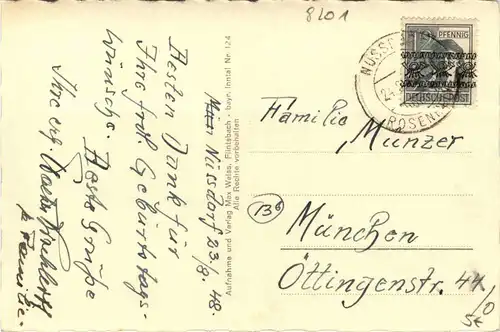 8201
Nüssdorf 23./8. 48.
Besten Dank für
Ihre frdl. Geburtstags-
wünsche. Beste Grüße
Ihre erg.
u. Familie.
Aufnahme und Verlag Max Weiss, Flintsbach - bayr. Inntal Nr. 124
Alle Rechte vorbehalten
PFENNIG
DEUTSCHE POST
NUSSD
ROSENH
Familie Munzer
(13b)
München
Öttingenstr. 44
/0